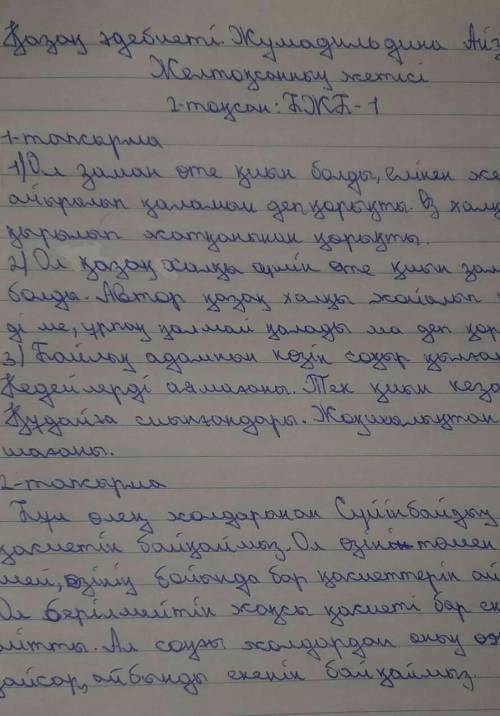 Қазақ әдебиеті. Жумадильдина Айз
Желтоқсанның жетісі
2-тоқсан: БЖБ-1
1-тапсырма
1) Ол заман өте қиын болды, елінен же
айырылып қаламан деп қорықты. Өз халқ
қырылып жатқанынан қорықты.
2) Ол қазақ халқы үшін өте қиын зам
болды. Автор қазақ халқы жойылып
ді ме, ұрпақ қалмай қалады ма деп қор
3) Байлық адамның көзін соқыр қылған
Кедейлерді аямағаны. Тек қиын кеза
Құдайға сиынғандары. Жақсылықтан
шағаны.
2-тапсырма
Бұл өлең жолдарынан Сүйінбайдың
қасиетін байқаймыз. Ол өзін төмен
мей, өзінің бойында бар қасиеттерін ай
Ол берілмейтін жақсы қасиеті бар ек
йтты. Ал соңғы жолдардан оның өж
қайсар, айбынды екенін байқаймыз.